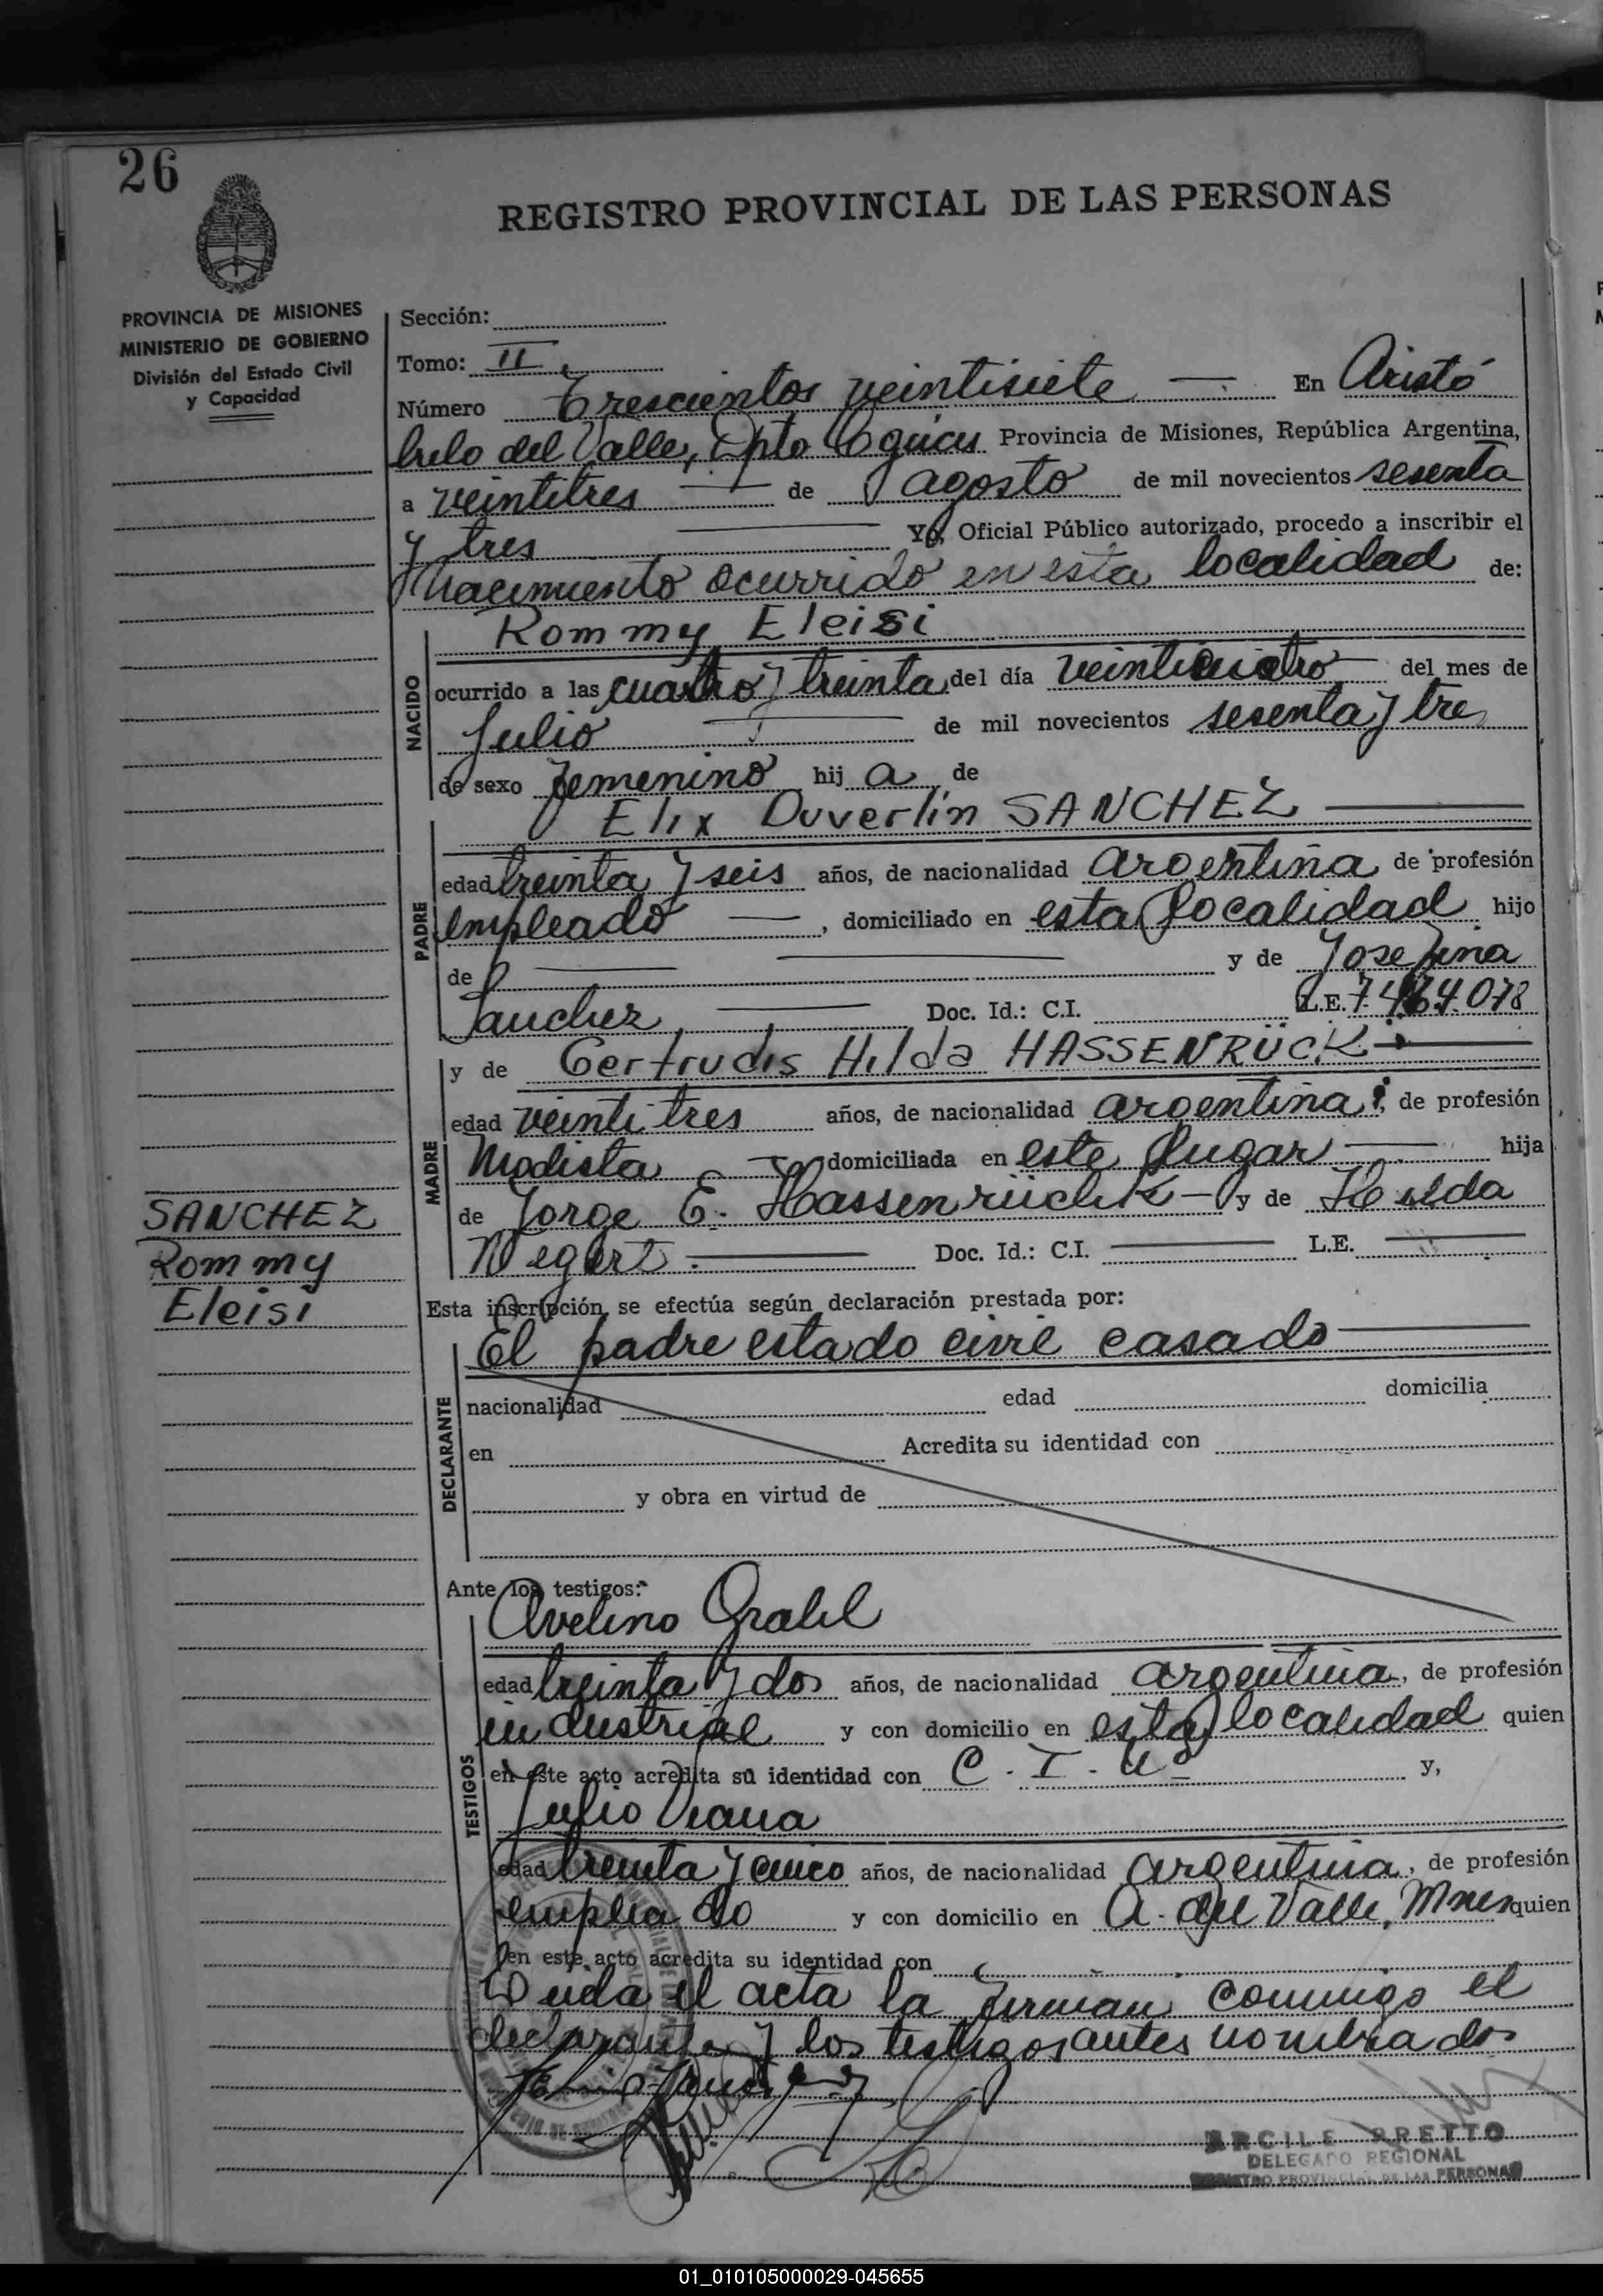 26
REGISTRO PROVINCIAL DE LAS PERSONAS
PROVINCIA DE MISIONES
MINISTERIO DE GOBIERNO
División del Estado Civil
y Capacidad
Sección:
Tomo: II
Número Trescientos veintisiete — En Aristó
bulo del Valle, Dpto Cguás Provincia de Misiones, República Argentina,
a veintitres — de agosto de mil novecientos sesenta
y tres — Yo, Oficial Público autorizado, procedo a inscribir el
Nacimiento ocurrido en esta localidad de:
Rommy Eleisi
NACIDO
ocurrido a las cuatro y treinta del día veinticuatro — del mes de
Julio — de mil novecientos sesenta y tres
de sexo femenino hij a de
Elix Duverlin SANCHEZ —
PADRE
edad treinta y seis años, de nacionalidad argentina de profesión
empleado —, domiciliado en esta localidad hijo
de — y de Josefina
Sanchez — Doc. Id.: C.I. L.E. 7.464.078
y de Gertrudis Hilda HASSENRÜCK —
MADRE
edad veintitres años, de nacionalidad argentina, de profesión
Modista — domiciliada en este lugar — hija
de Jorge E. Hassenrüchk — y de Hilda
Wegert. — Doc. Id.: C.I. — L.E. —
SANCHEZ
Rommy
Eleisi
Esta inscripción se efectúa según declaración prestada por:
El padre estado civil casado —
DECLARANTE
nacionalidad edad domicilia
en Acredita su identidad con
y obra en virtud de
Ante los testigos:
Avelino Grahl
TESTIGOS
edad treinta y dos años, de nacionalidad argentina, de profesión
industrial y con domicilio en esta localidad quien
en este acto acredita su identidad con C. I. Nº y,
Julio Viana
edad treinta y cinco años, de nacionalidad argentina, de profesión
empleado y con domicilio en A. del Valle, Mnes quien
en este acto acredita su identidad con
Leida el acta la firman conmigo el
declarante y los testigos antes nombrados
DELEGADO REGIONAL
REGISTRO PROVINCIAL DE LAS PERSONAS
01_010105000029-045655